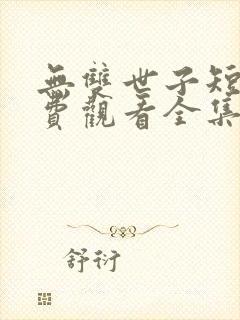 無雙世子短
費觀看全集
舒衍